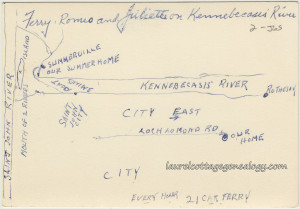 Ferry - Romeo and Juliette on Kennebecasis River
2-Jos
SUMMERVILLE
OUR SUMMER HOME
ISLAND
KENNEBECASIS RIVER
ROTHESAY
SAINT JOHN RIVER
SAINT
JOHN
CITY
CITY EAST
LOCH LOMOND RD
OUR
HOME
CITY
laurelcottagegenealogy.com
EVERY HOUR 21 CAR FERRY